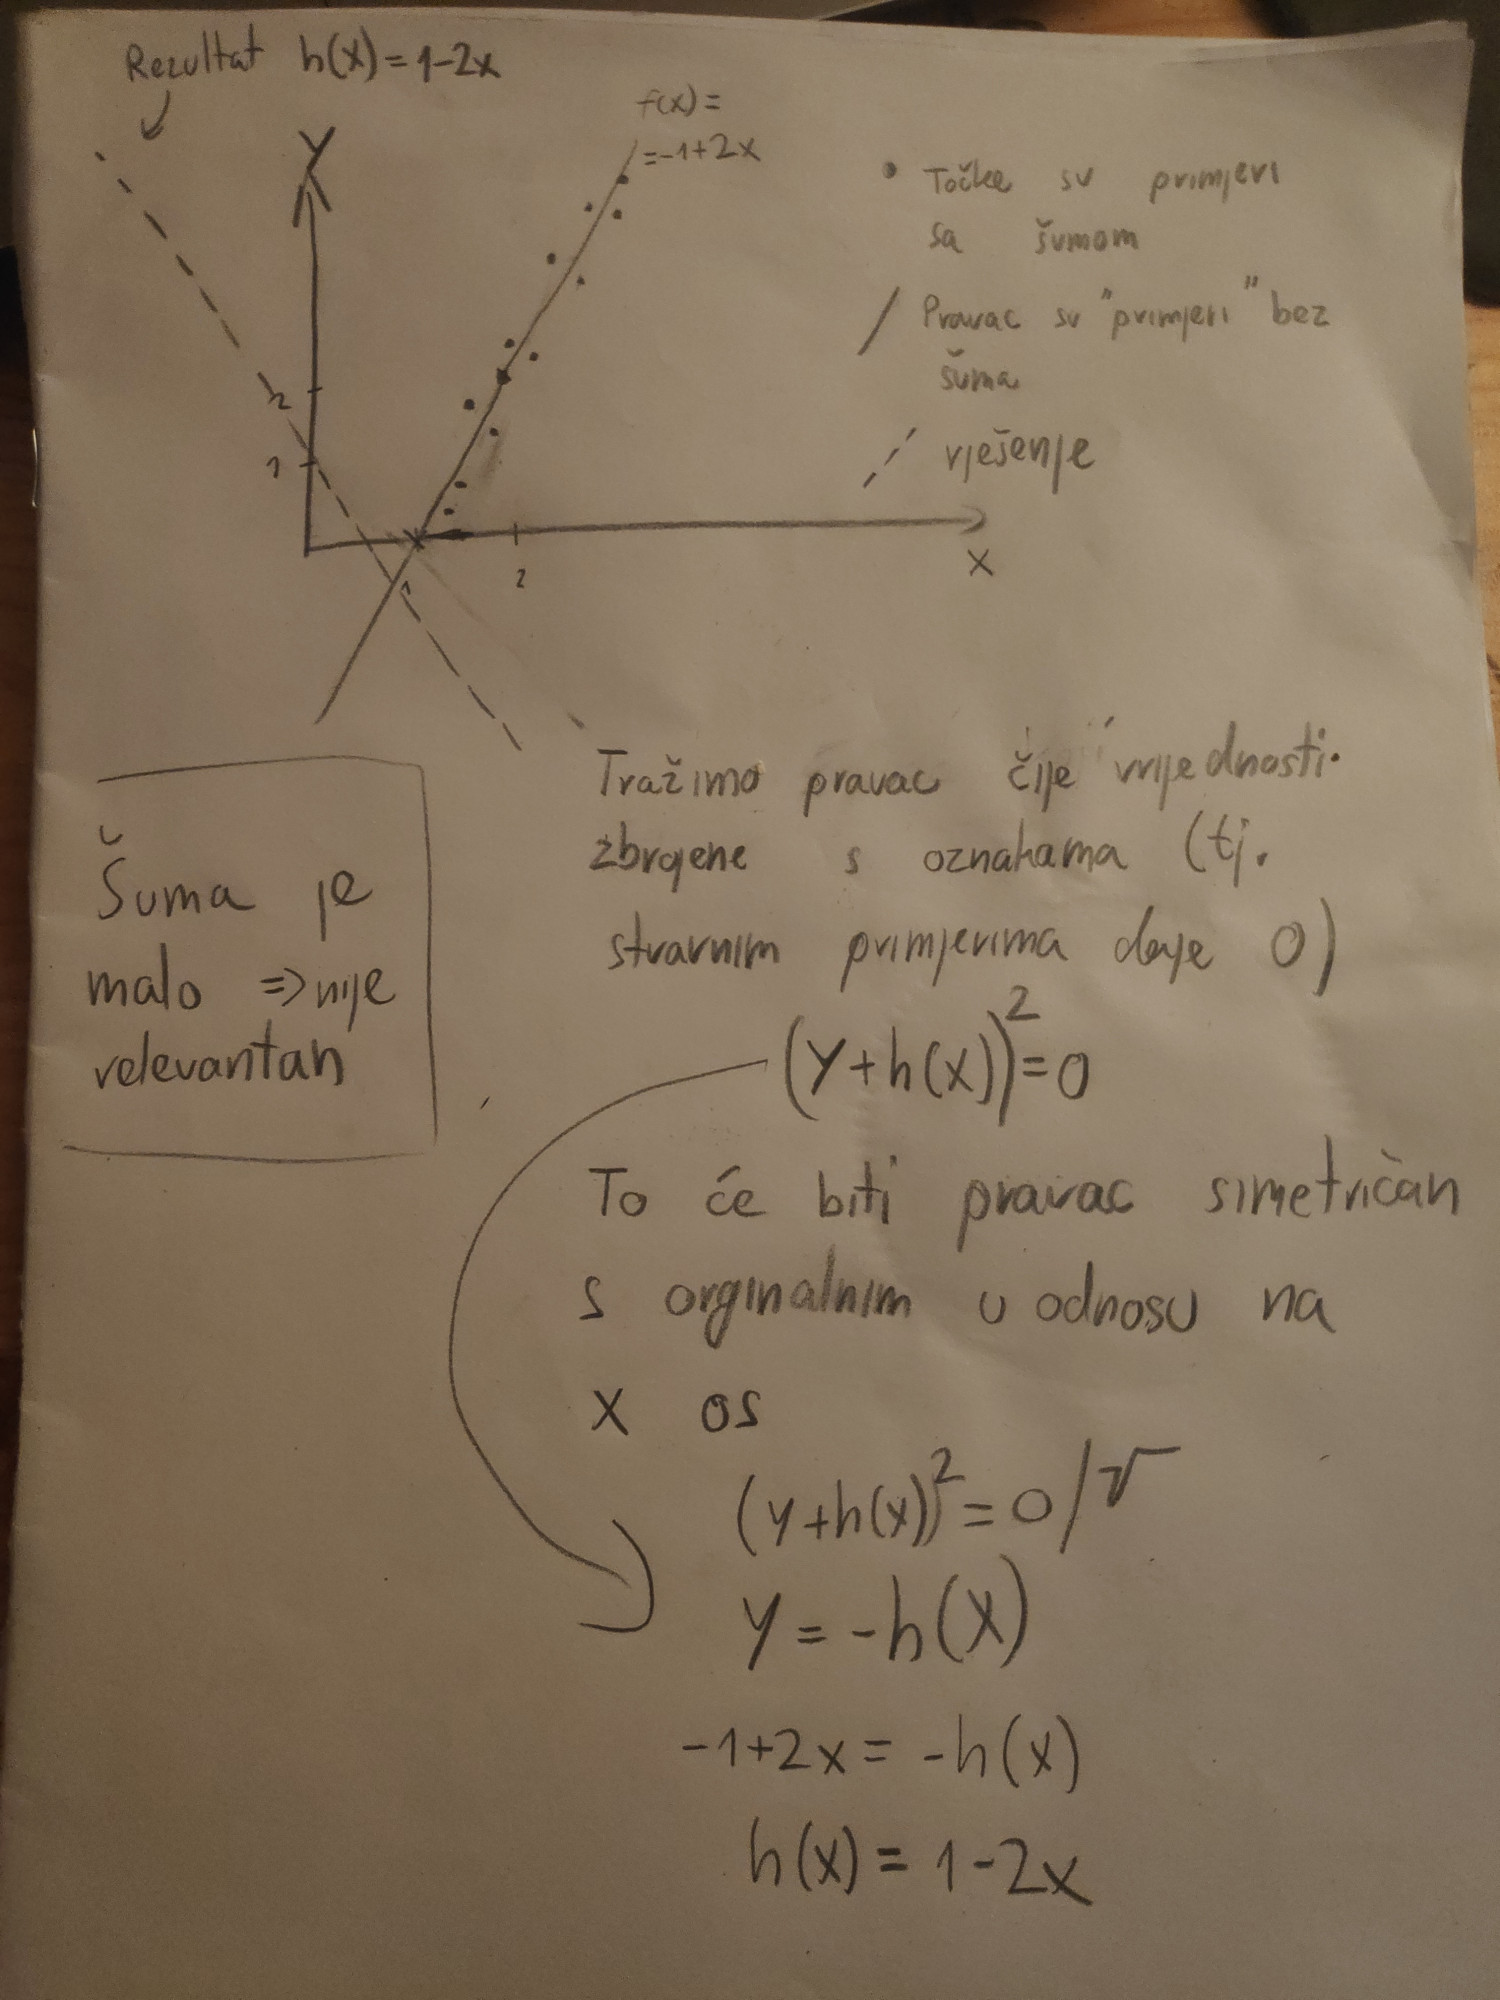 Rezultat h(x)=1-2x
f(x)=
=-1+2x
Y
2
1
1
2
X
• Točke su primjeri
sa šumom
/ Pravac su "primjeri" bez
šuma
rješenje
Tražimo pravac čije vrijednosti
zbrojene s oznakama (tj.
stvarnim primjerima daje 0)
(y+h(x))²=0
Šuma je
malo => nije
relevantan
To će biti pravac simetričan
s orginalnim u odnosu na
x os
(y+h(x))²=0/√
y=-h(x)
-1+2x=-h(x)
h(x)=1-2x